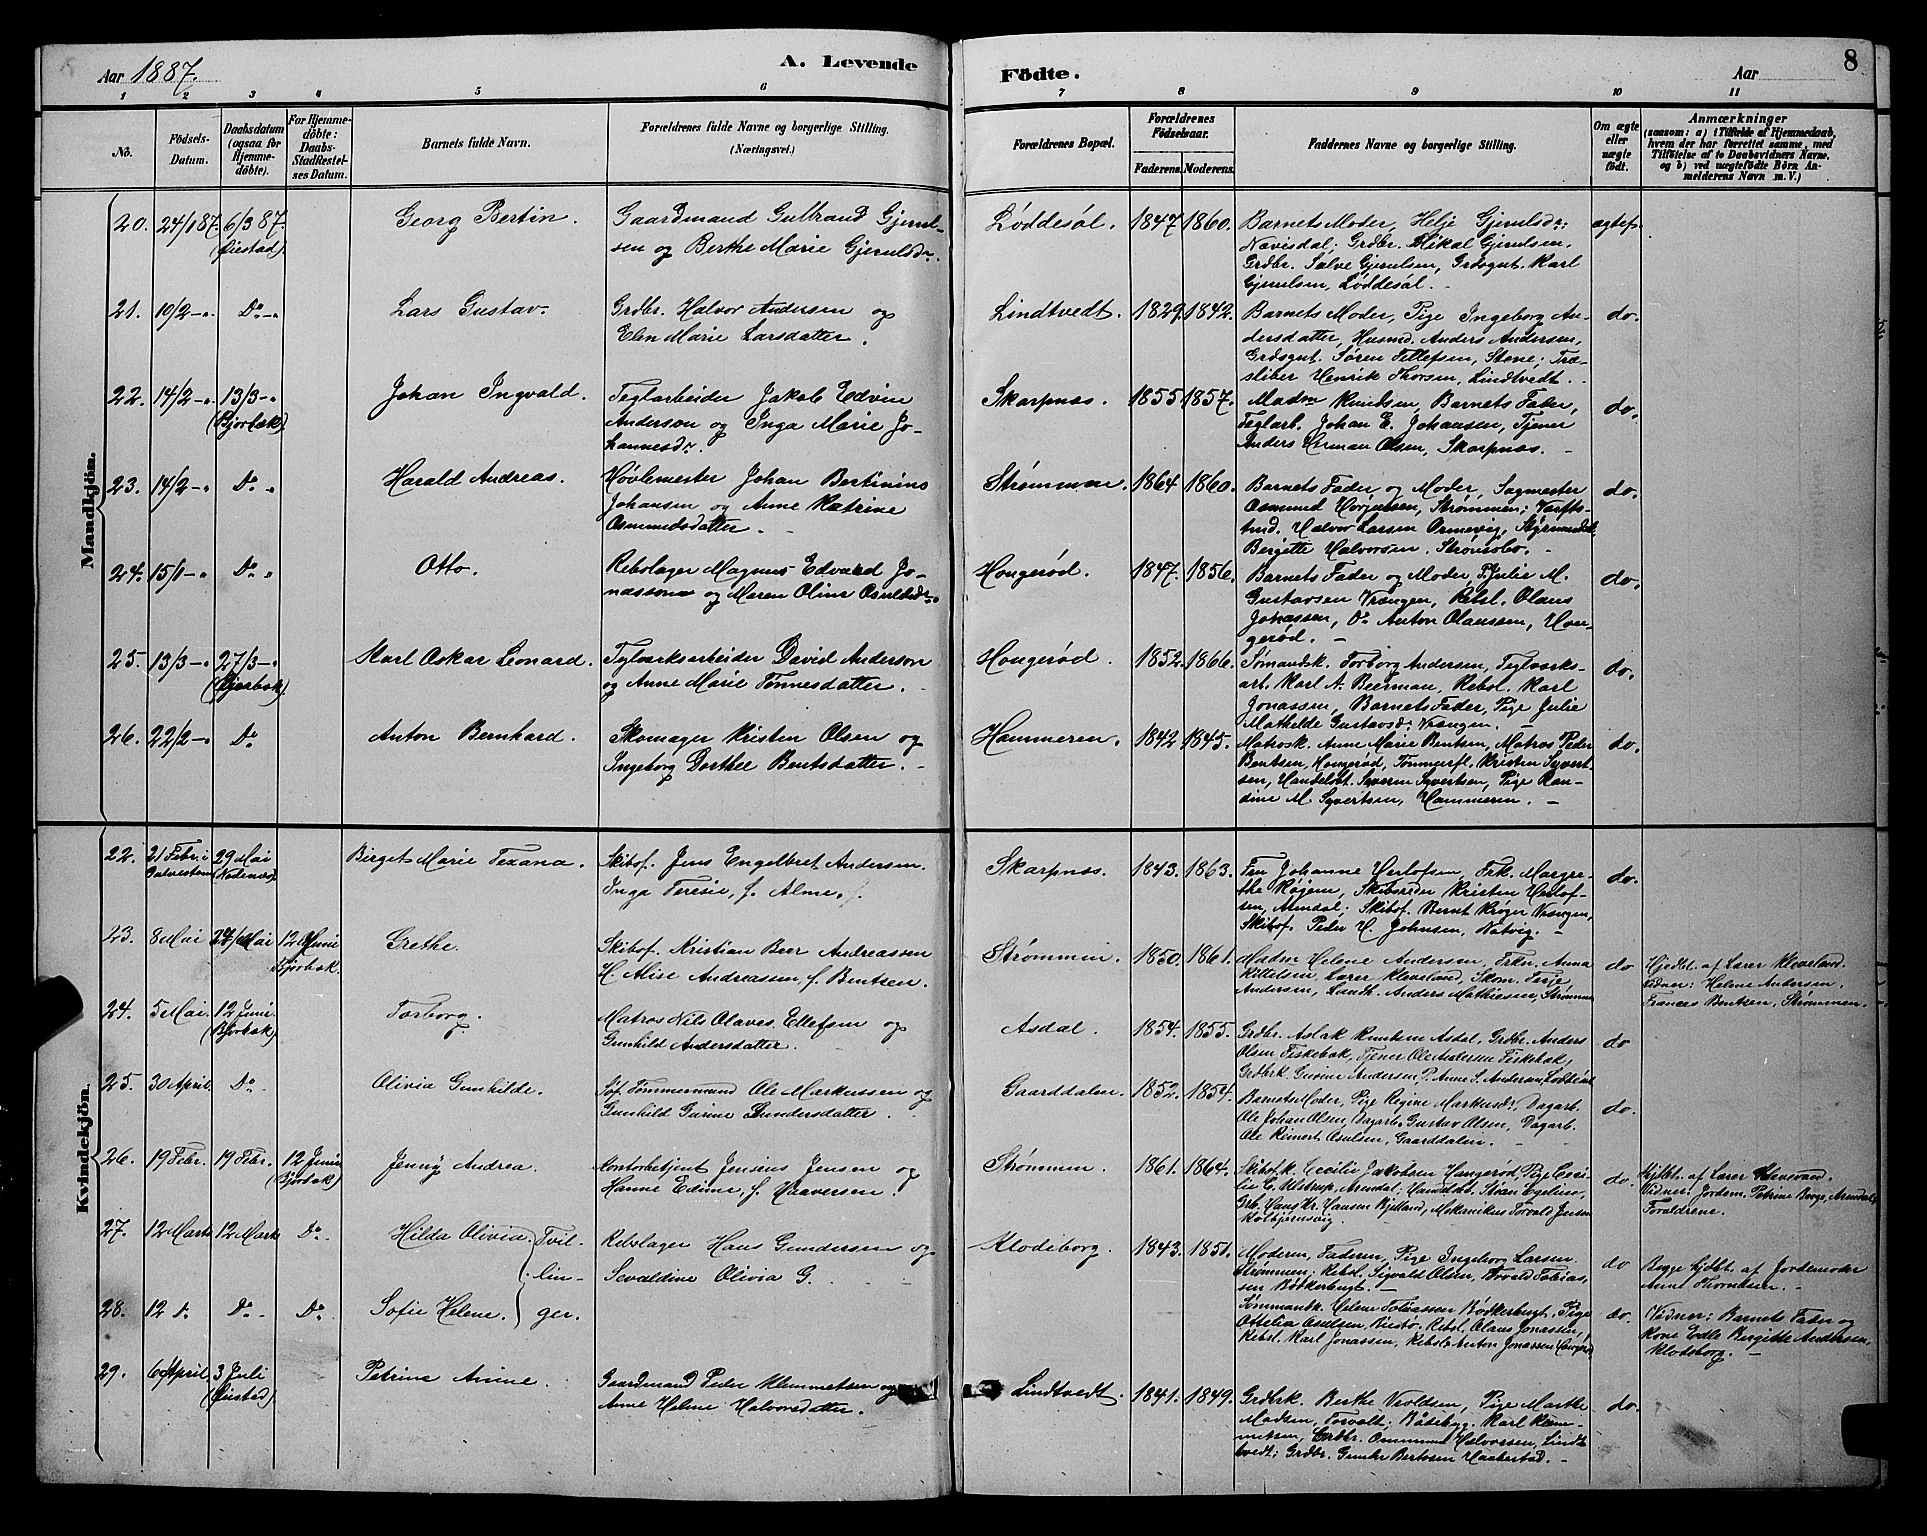 Aar 1887.
A. Levende
Födte.
Aar
8
1 2 3 4 5 6 7 8 9 10 11
No.
Födsels-
Datum.
Daabsdatum
(ogsaa for
Hjemme-
döbte).
For Hjemme-
döbte:
Daabs-
Stadfæstel-
ses Datum.
Barnets fulde Navn.
Forældrenes fulde Navne og borgerlige Stilling.
(Næringsvei.)
Forældrenes Bopæl.
Forældrenes
Födselsaar.
Faderens. Moderens.
Faddernes Navne og borgerlige Stilling.
Om ægte
eller
uægte
födt.
Anmærkninger
(saasom: a) i Tilfælde af Hjemmedaab,
hvem der har forrettet samme, med
Tilföielse af to Daabsvidners Navne,
og b) ved uægtefödte Börn An-
melderens Navn m. V.)
Mandkjön.
20. 24/1 87. 6/3 87.
(Øiestad).
Georg Bertin.
Gaardmand Gulbrand Gjeruls-
sen og Berthe Marie Gjerulsdr.
Løddesøl. 1847 1860.
Barnets Moder, Helje Gjerulsdr.
Navisdal; Grdbr. Mikal Gjerulsen,
Grdbr. Salve Gjerulsen, Grdsgut. Karl
Gjerulsen, Løddesøl. -
ægtef.
21. 10/2 -"- Do -"-
Lars Gustav.
Grdbr. Halvor Andersen og
Elen Marie Larsdatter.
Lindtvedt. 1829. 1842.
Barnets Moder, Pige Ingeborg An-
dersdatter, Husmd. Anders Andersen,
Grdsgut. Søren Tellefsen, Stene; Træ-
sliber Henrik Thorsen, Lindtvedt.
do.
22. 14/2 -"- 13/3 -"-
(Bjorbæk).
Johan Ingvald.
Teglarbeider Jakob Edvin
Anderson og Inga Marie Jo-
hannesdr.
Skarpnæs. 1855 1857.
Madm Knudsen, Barnets Fader,
Teglarb. Johan E. Johansen, Tjener
Anders Herman Olsen, Skarpnæs. -
do.
23. 14/2 -"- Do "
Harald Andreas.
Høvlemester Johan Bertinius
Johansen og Anne Katrine
Osmundsdatter. -
Strømmen. 1864 1860.
Barnets Fader og Moder, Sagmester
Osmund Strømmen;
Halvor Larsen Ormevig,
Bergitte Halvorsen. Strømsbo. -
do.
24. 15/1 -"- Do "
Otto.
Rebslager Magnus Edvard Jo-
nassen og Maren Oline
Hougerød. 1847. 1856.
Barnets Fader og Moder, P. Julie M.
Gustavsen Vrængen, Rebsl. Olaus
Johassen, Do Anton Olaussen, Hou-
gerød. -
do.
25. 13/3 -"- 27/3 -"-
(Bjorbæk)
Karl Oskar Leonard.
Teglværksarbeider David Anderson
og Anne Marie Tønnesdatter. -
Hougerød. 1852. 1866.
Sømandsk. Torborg Andersen, Teglværks-
arb. Karl A. Beerman, Rebsl. Karl
Jonassen, Barnets Fader, Pige Julie
Mathilde Gustavsdr. Vrængen. -
do.
26. 22/2 -"- Do
Anton Bernhard.
Skomager Kristen Olsen og
Ingeborg Dorthee Bentsdatter. -
Hammeren. 1842 1845.
Matrosk. Anne Marie Bentsen, Matros Peder
Bentsen, Hougerød, Tømmerfl. Kristen Syvert-
sen, Handelsbt. Severin Syvertsen, Pige Ran-
dine M. Syvertsen, Hammeren. -
do.
Kvindekjön.
22. 21 Febr. i
Galveston
29 Mai
Birget Marie Texana.
Skibsf. Jens Engelbret Andersen.
Inga Teresie, f. Alme.
Skarpnæs. 1843. 1863.
Fru Johanne Herlofsen, Frk. Margre-
the Røgem; Skibsreder Kristen Herlof-
sen, Arendal; Skibsf. Bernt Krøger Vrængen,
Skibsf. Peder H. Johnsen, Natvig. -
do.
23. 8 Mai 24/ Mai 12 Juni
Bjorbæk.
Grethe.
Skibsf. Kristian Beer Andreassen
H. Alise Andreassen f. Bentsen.
Strømmen. 1850. 1861.
Madm Helene Andersen, Frkn. Anna
Kittelsen, Lærer Kleveland, Skom. Terje
Andersen, Landh. Anders Mathiesen, Strømmen
do
Hjdbt. af Lærer Kleveland.
Vidner: Helene Andersen.
Frances Bentsen, Strømmen.
24. 5 Mai 12 Juni
(Bjorbæk)
Torborg.
Matros Nils Olaves Ellefsen og
Gunhild Andersdatter.
Asdal. 1854. 1855.
Grdbr. Aslak Knutsen Asdal, Grdbr. Anders
Olsen Fiskebæk, Tjener Ole Andersen Fiskebæk,
Grdbrk. Gurine Andersen, P. Anne S. Andersen, Løddesøl
do
25. 30 April Do -
Olivia Gunhilde.
Søf. Tømmermand Ole Markussen og
Gunhild Gurine Gundersdatter.
Gaarddalen. 1852. 1854.
Barnets Moder, Pige Regine Markusdr., Dagarb.
Ole Johan Olsen, Dagarb. Gustav Olsen, Dagarb.
Ole Reinert Osulsen, Gaarddalen. -
do.
26. 19 Febr. 19 Febr. 12 Juni
(Bjorbæk)
Jenny Andrea.
Kontorbetjent Jensius Jensen og
Hanne Edine, f. Haaversen.
Strømmen. 1861. 1864.
Skibsf.k. Cecilie Jakobsen Hougerød, Pige Ceci-
lie C. Arendal;
Hans Kr. Hansen Mekanikus Torvald Jensen
Kolbjørnsvig
do.
Hjdbt. af Lærer Kleveland
Vidner: Jordem. Petrine Berge, Arendal,
Forældrene.
27. 12 Marts 12 Marts Do.
Hilda Olivia. } Tvil-
lin-
Rebslager Hans Gundersen og
Sevaldine Olivia G. -
Klodeborg. 1843. 1851.
Moderen, Faderen, Pige Ingeborg Larsen
Strømmen; Rebsl. Sigvald Olsen, Torvald Tobias-
sen Bødkerbugt. -
do
Begge hjdbt. af Jordemoder
Anne Thorndsen. -
28. 12 d. Do - Do
Sofie Helene. } ger.
Sømmandk. Helene Tobiassen Bødkerbugt. Pige
Ottelia Osulsen, Rebsl. Olaus Jonassen,
Rebsl. Karl Jonassen, Rebsl. Anton Jonassen
do.
(Vidner: Barnets Fader og
Kone Edle Birgitte Andersen,
Klodeborg. -
29. 6 April 3 Juli
(Øiestad)
Petrine Anine.
Gaardmand Peder Klemmetsen og
Anne Helene Halvorsdatter.
Lindtvedt. 1841. 1849.
Grdbrk. Berthe Neoldsen, Pige Marthe
Madsen, Torvald Karl Klem-
metsen, Grdbr. Ommund Halvorsen, Lindt-
vedt; Grdbr. Gunder Bertosen Haabestad. -
do.